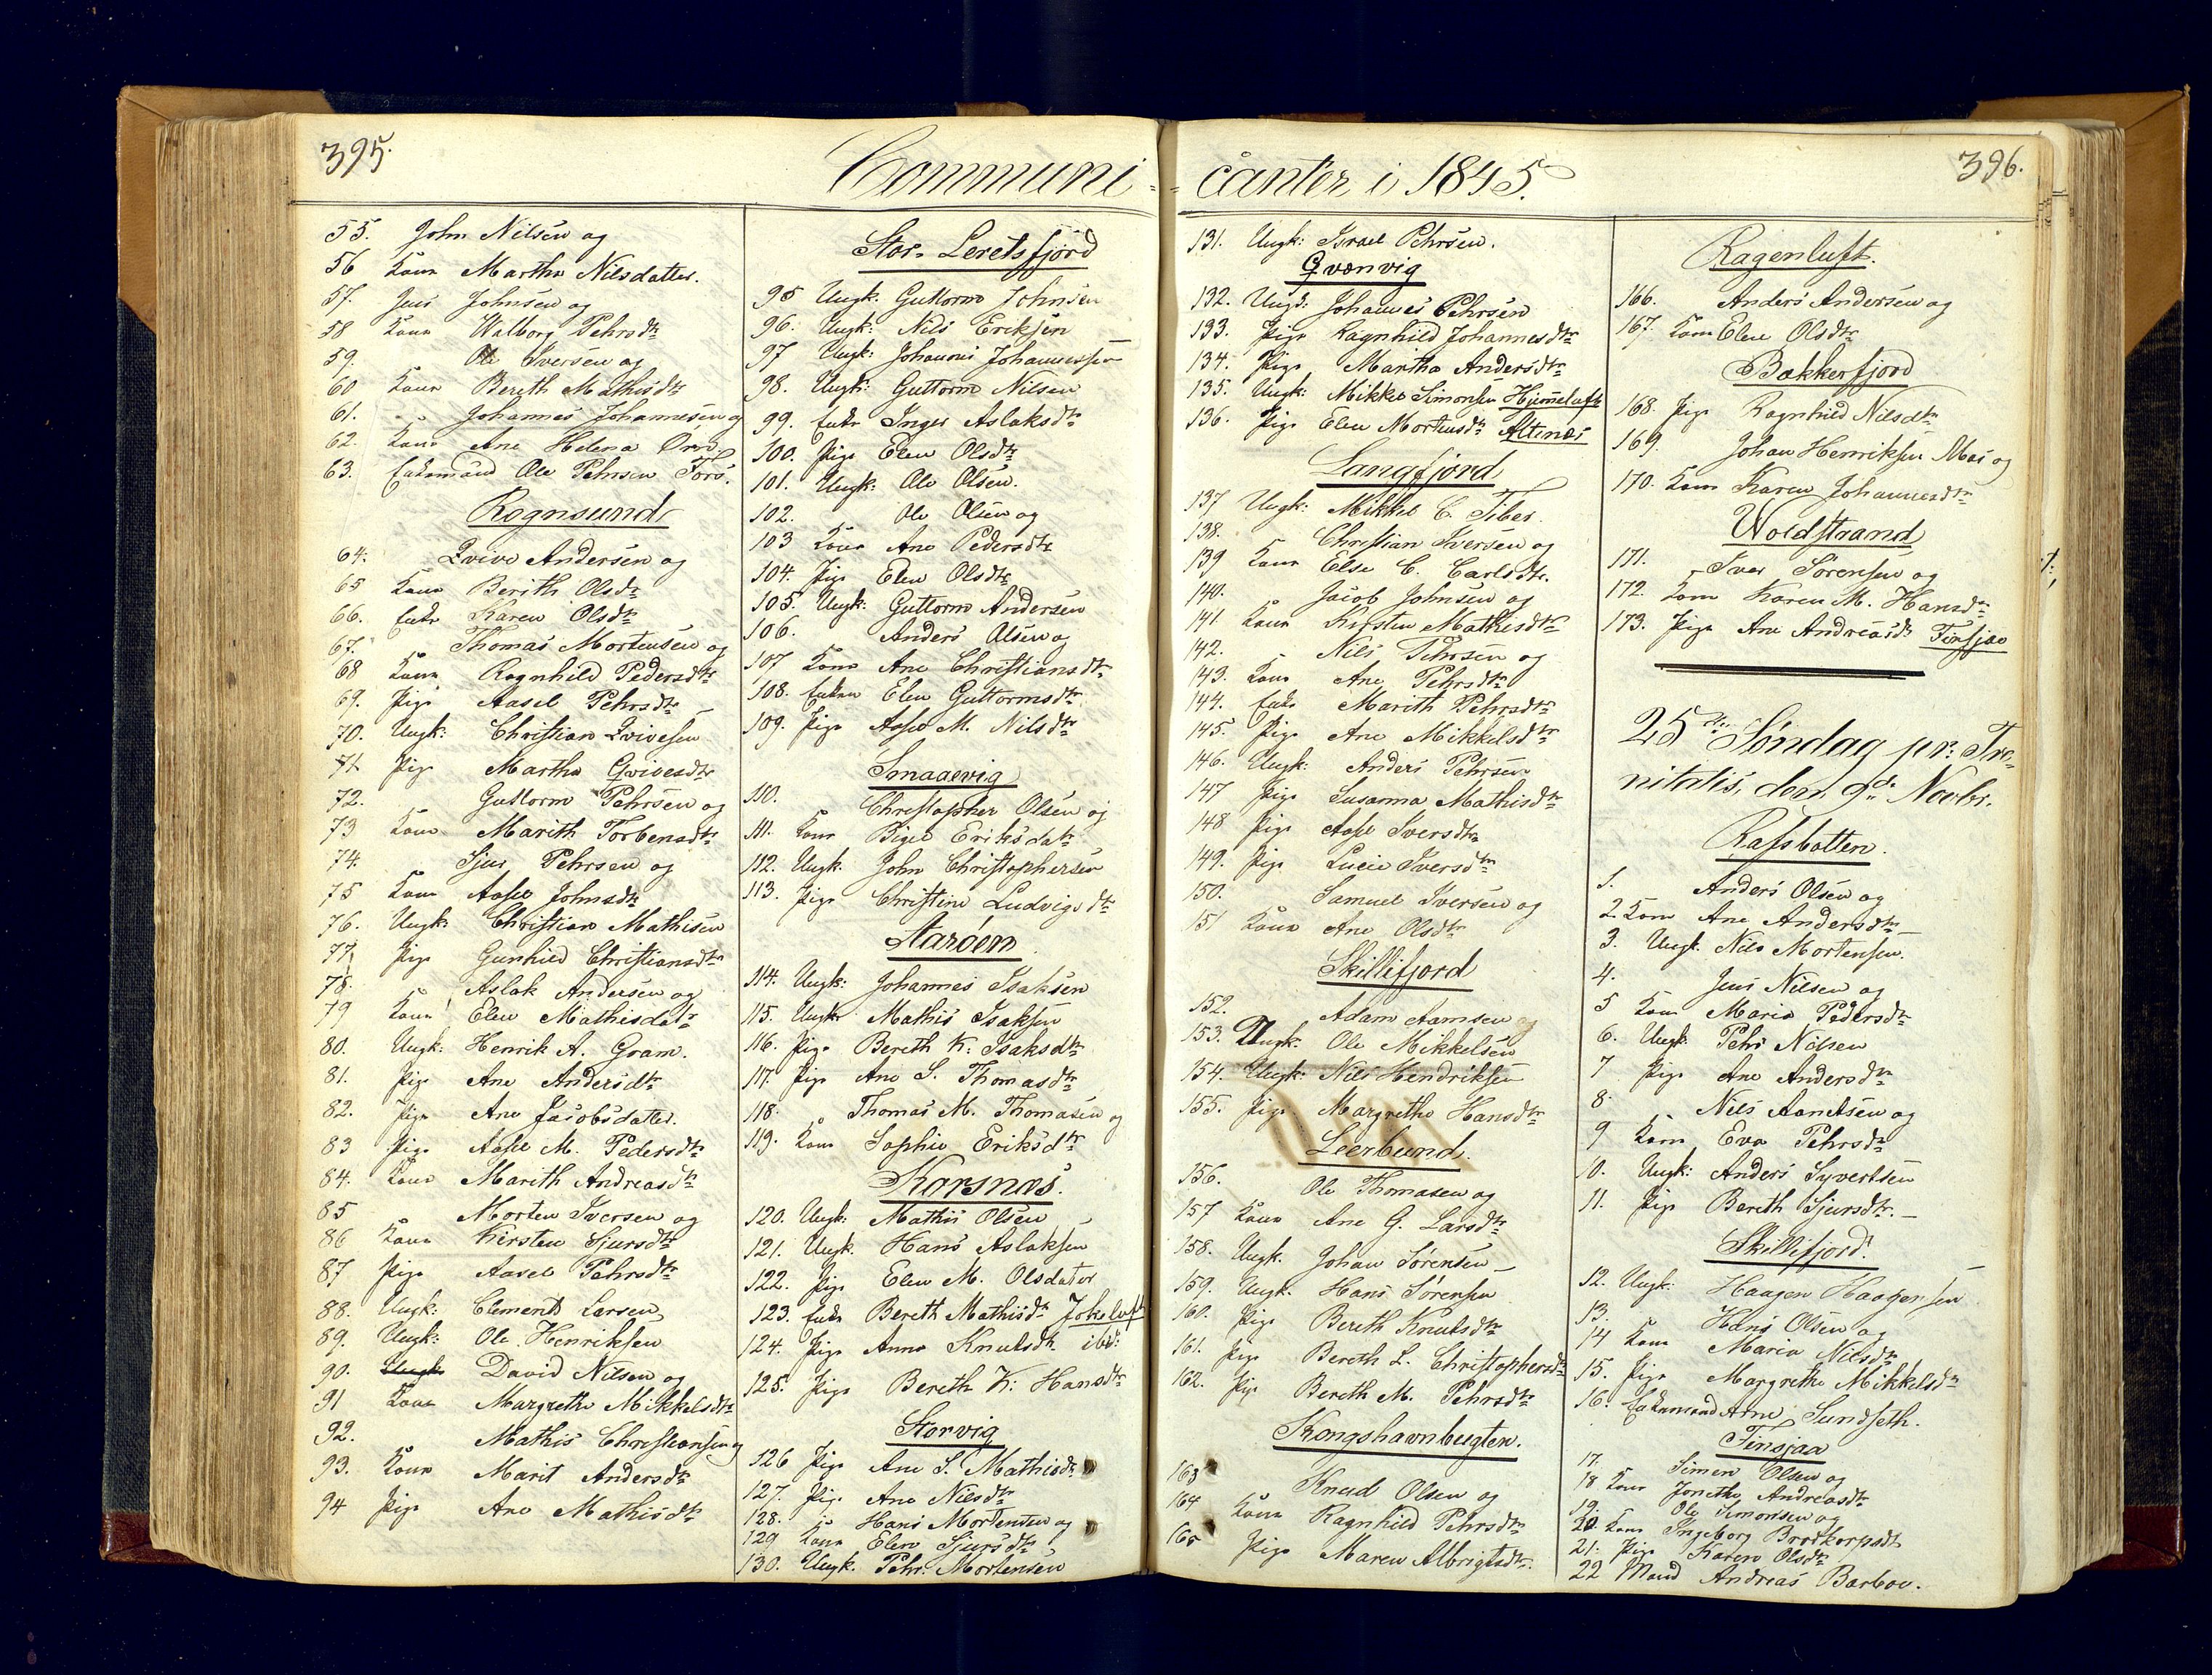 395.
Communi-
55. John Nilsen og
56 Kone Martha Nilsdatter.
57. Jens Johnsen og
58 Kone Walborg Pehrsdtr
59. Ole Iversen og
60 Kone Bereth Mathisdtr
61. Johannes Johannesen og
62. Kone Ane Helena
63. Enkemand Ole Pehrsen
Rognsund
64. Qvive Andersen og
65 Kone Berith Olsdr
66. Enke Karen Olsdtr
67. Thomas Mortensen og
68 Kone Ragnhild Pedersdtr
69. Pige Aasel Pehrsdtr
70. Ungk: Christian Qvivesen
71 Pige Martha Qvivesdtr
72. Guttorm Pehrsen og
73 Kone Marith Torbensdtr
74. Sjur Pehrsen og
75 Kone Aase Johnsdtr
76. Ungk: Christian Mathisen
77. Pige Gunhild Christiansdtr
78. Aslak Andersen og
79 Kone Elen Mathisdatr
80. Ungk: Henrik A. Gram.
81. Pige Ane Andersdtr
82. Pige Ane Jacobsdatter.
83 Pige Aase M. Pedersdtr
84. Kone Marith Andreasdtr
85 Morten Iversen og
86 Kone Kirsten Sjursdtr
87 Pige Aasel Pehrsdtr
88. Ungk: Clement Larsen
89. Ungk: Ole Henriksen
90. Ungk. David Nilsen og
91 Kone Margrethe Mikkelsdtr
92. Mathis Christiansen og
93. Kone Marit Andersdtr
94 Pige Ane Mathisdtr
Stor-Leretsfjord
95 Ungk. Guttorm Johnsen
96. Ungk: Nils Eriksen
97 Ungk: Johannes Johannessen
98. Ungk: Guttorm Nilsen
99. Enke Inger Aslaksdtr
100. Pige Elen Olsdtr
101. Ungk: Ole Olsen.
102. Ole Olsen og
103 Kone Ane Pedersdtr
104. Pige Elen Olsdtr
105. Ungk: Guttorm Andersen
106. Anders Olsen og
107 Kone Ane Christiansdtr
108. Enken Elen Guttormsdtr
109. Pige Aase M. Nilsdtr
Smaaevig
110. Christopher Olsen og
111. Kone Eriksdatr
112. Ungk. John Christophersen
113. Pige Christine Ludvigsdtr
Aarøen
114. Ungk: Johannes Isaksen
115. Ungk: Mathis Isaksen
116. Pige Bereth K: Isaksdtr
117. Pige Ane S. Thomasdtr
118. Thomas M. Thomasen og
119. Kone Sophie Eriksdtr
Korsnæs.
120. Ungk: Mathis Olsen
121. Ungk. Hans Aslaksen
122. Pige Elen M. Olsdatter
123. Enke Bereth Mathisdr Jokeluft
124. Pige Anne Knutsdtr ibd:
125. Pige Bereth K: Hansdtr
Storvig
126 Pige Ane S. Mathisdtr
127. Pige Ane Nilsdtr
128. Hans Mortensen og
129 Kone Elen Sjursdtr
130. Ungk. Pehr Mortensen
396.
canter i 1845.
131. Ungk: Israel Pehrsen.
Qvænvig
132. Ungk: Johannes Pehrsen
133. Pige Ragnhild Johannesdtr
134. Pige Martha Andersdtr
135. Ungk: Mikkel Simonsen Hjemeluft
136. Pige Elen Mortensdtr Altnæs
Langfjord
137 Ungk: Mikkel C. Siber.
138. Christian Iversen og
139 Kone Else C. Carlsdtr.
140. Jacob Johnsen og
141 Kone Kirsten Mathisdtr
142. Nils Pehrsen og
143. Kone Ane Pehrsdtr
144. Enke Marith Pehrsdtr
145. Pige Ane Mikkelsdtr
146. Ungk: Anders Pehrsen
147 Pige Susanna Mathisdtr
148 Pige Aase Iversdtr
149. Pige Lucie Iversdtr
150. Samuel Iversen og
151 Kone Ane Olsdtr
Skillifjord
152. Adam Aamsen og
153. Ungk. Ole Mikkelsen
154. Ungk: Nils Hendriksen
155. Pige Margrethe Hansdtr
Leerbund.
156. Ole Thomasen og
157 Kone Ane G. Larsdtr
158. Ungk. Johan Sørensen
159. Ungk. Hans Sørensen
160. Pige Bereth Knutsdtr
161. Pige Bereth L. Christophersdtr
162. Pige Bereth M. Pehrsdtr
Kongshavnbugten.
163 Knud Olsen og
164 Kone Ragnhild Pehrsdtr
165 Pige Maren Albrigtsdtr.
Ragenluft.
166. Anders Andersen og
167. Kone Elen Olsdtr
Bækkerfjord
168. Pige Ragnhild Nilsdtr
169. Johan Henriksen Mas og
170. Kone Karen Johannesdtr
Woldstrand
171. Iver Sørensen og
172. Kone Karen M. Hansdr
173. Pige Ane Andreasdr Tinsjaa
25de Søndag pr: Tre-
nitatis, den 9de Novbr.
Rafsbotten.
1. Anders Olsen og
2 Kone Ane Andersdtr
3. Ungk. Nils Mortensen.
4. Jens Nilsen og
5 Kone Maria Pedersdtr
6. Ungk: Pehr Nilsen
7 Pige Ane Andersdtr
8. Nils Aantsen og
9 Kone Eva Pehrsdtr
10. Ungk: Anders Syvertsen
11. Pige Bereth Sjursdtr.
Skillifjord.
12. Ungk: Haagen Haagensen
13. Hans Olsen og
14 Kone Maria Nilsdtr
15. Pige Margrethe Mikkelsdtr
16. Enkemand Arne Sundseth.
Tinsjaa
17. Simen Olsen og
18 Kone Jonetha Andreasdtr
19. Ole Simonsen og
20. Kone Ingeborg Brodkorpsdtr
21. Pige Karen Olsdtr
22 Mand Andreas Barbou.